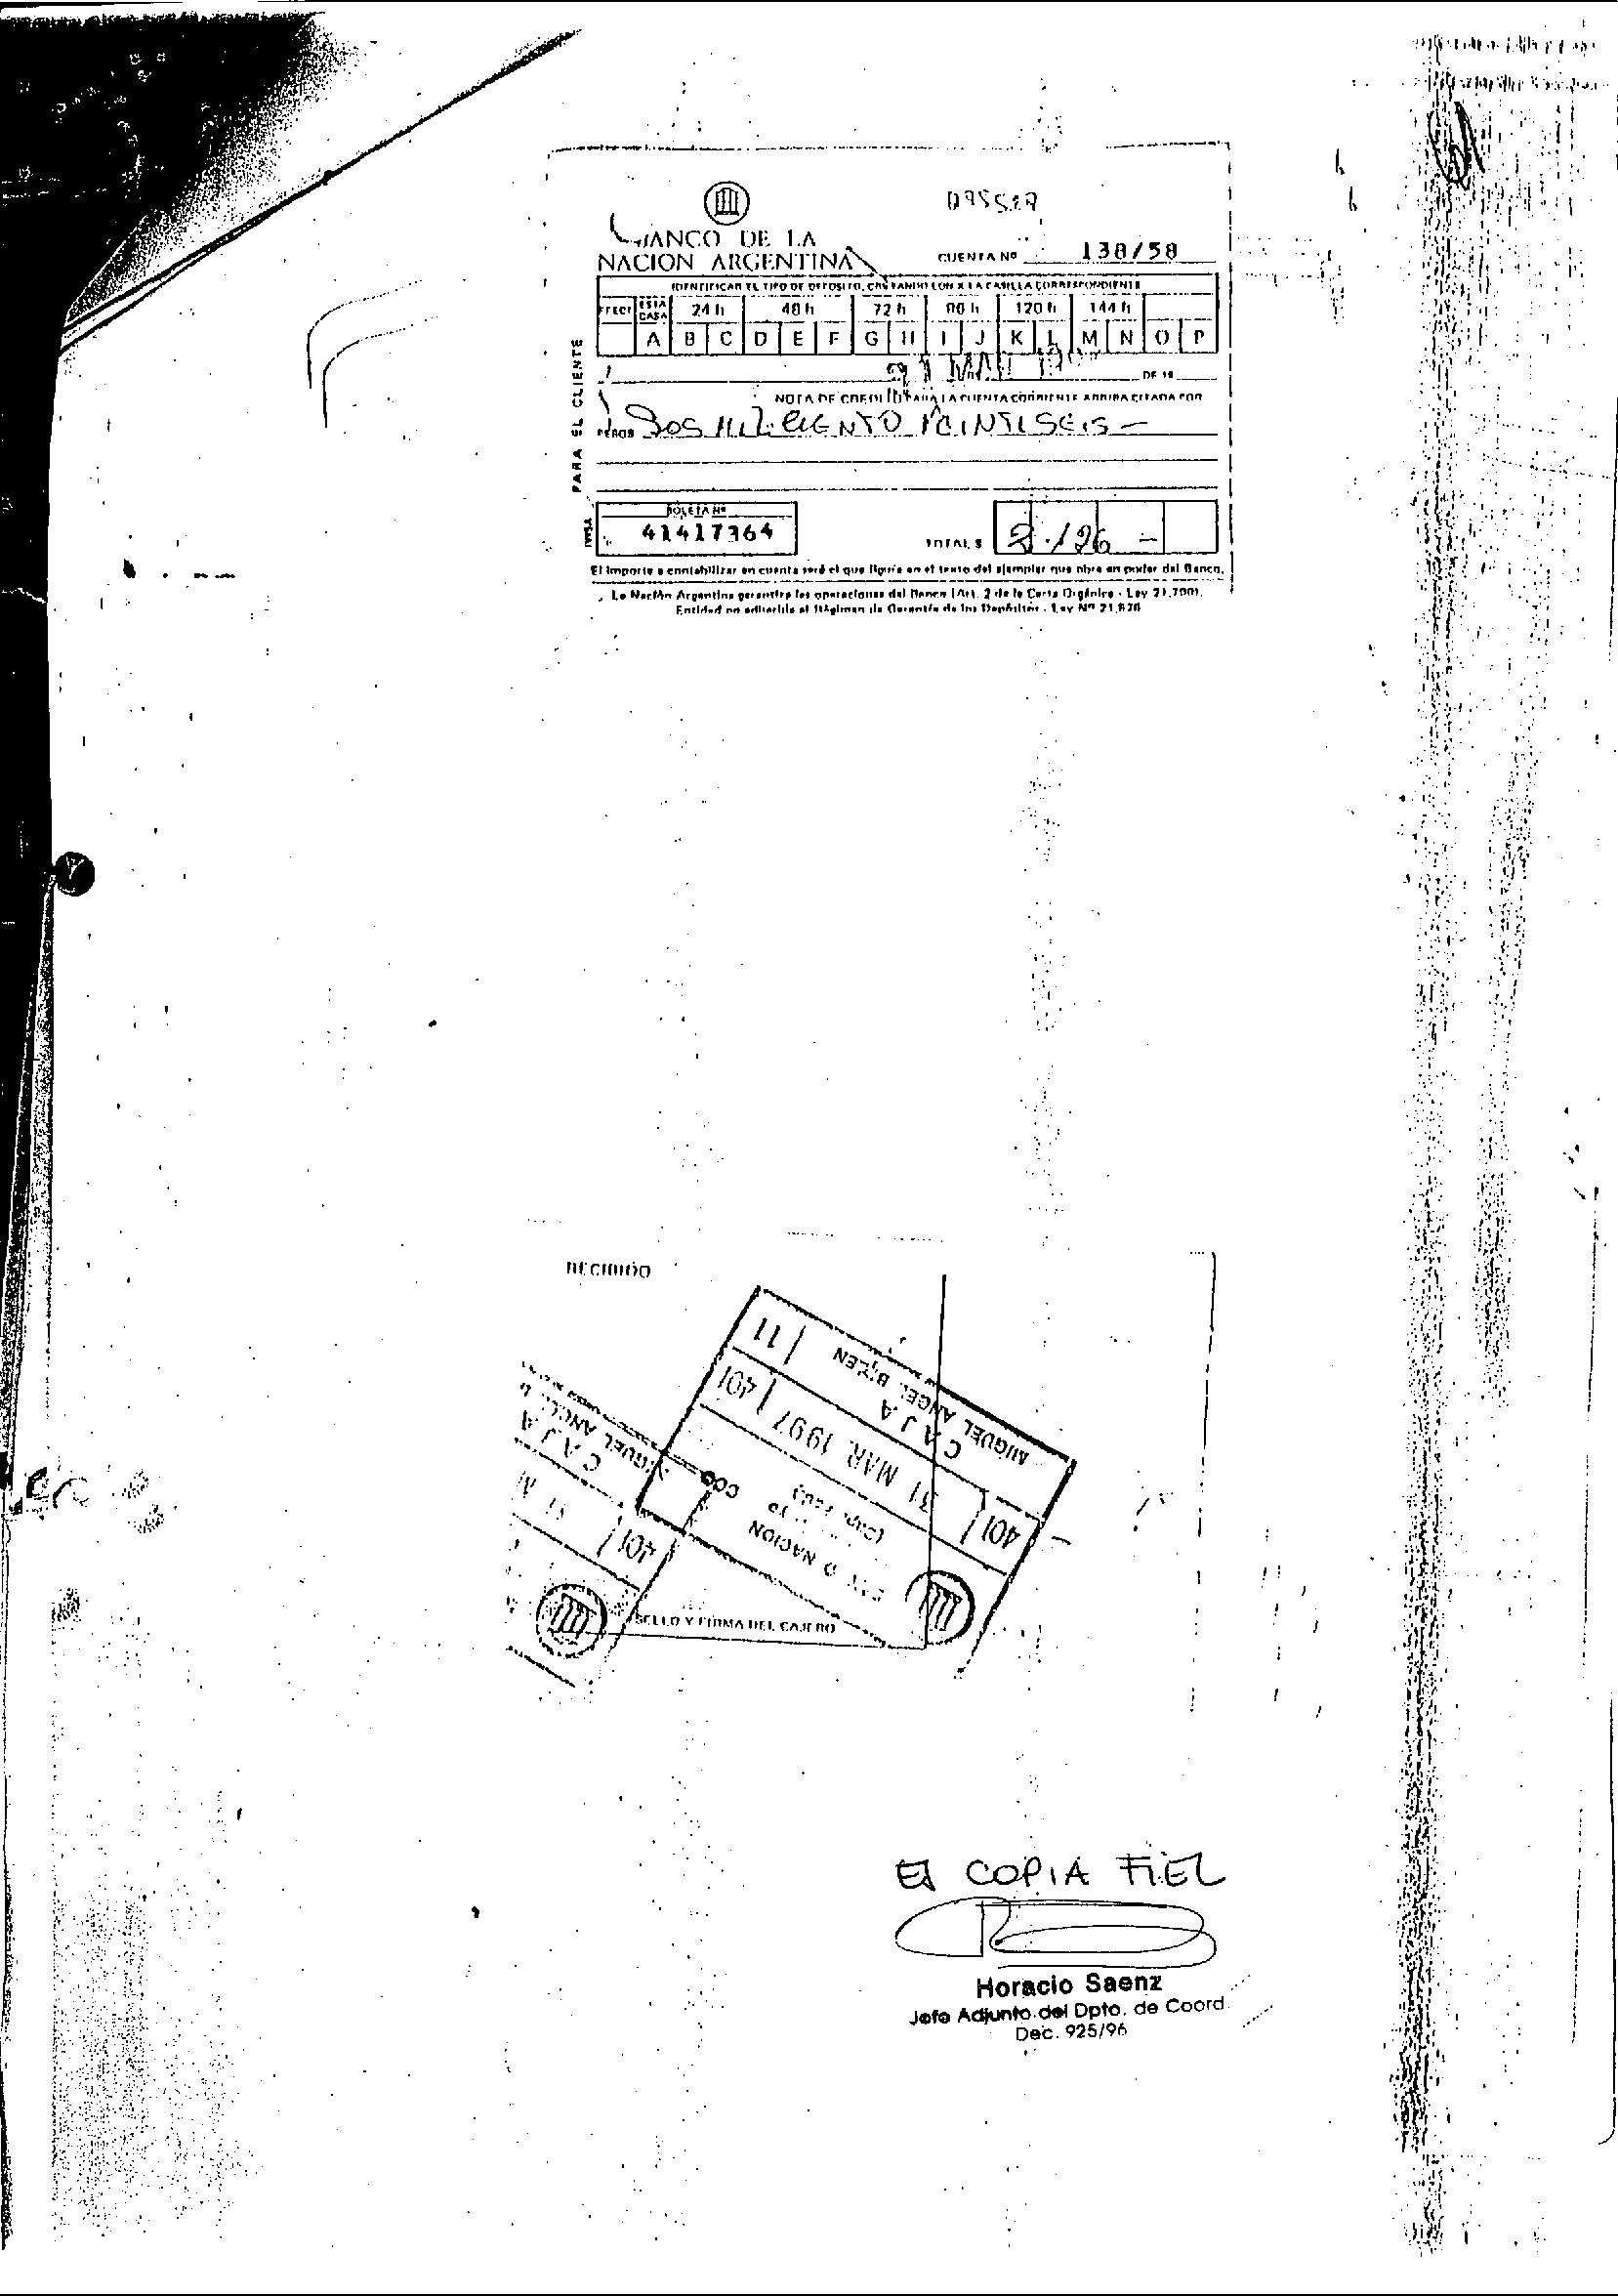 BANCO DE LA
NACION ARGENTINA
CUENTA Nº 138/58
IDENTIFICAR EL TIPO DE DEPOSITO, CRUZANDO CON X LA CASILLA CORRESPONDIENTE
EFECT ESTA CASA 24 h 48 h 72 h 96 h 120 h 144 h
A B C D E F G H I J K L M N O P
DE 19
NOTA DE CREDITO PARA LA CUENTA CORRIENTE ARRIBA CITADA POR
PESOS DOS MIL CIENTO VEINTISEIS —
PARA EL CLIENTE
BOLETA Nº
41417364
TOTAL $ 2.126 —
El importe a contabilizar en cuenta será el que figura en el texto del ejemplar que obra en poder del Banco.
La Nación Argentina garantiza las operaciones del Banco (Art. 2 de la Carta Orgánica - Ley 21.799).
Entidad no adherida al Régimen de Garantía de los Depósitos - Ley Nº 21.526
RECIBIÓ
MIGUEL ANGEL
11
CAJA
401 31 MAR. 1997 401
NACION
MIGUEL ANGEL
CAJA
401
SELLO Y FIRMA DEL CAJERO
ES COPIA FIEL
Horacio Saenz
Jefe Adjunto del Dpto. de Coord.
Dec. 925/96